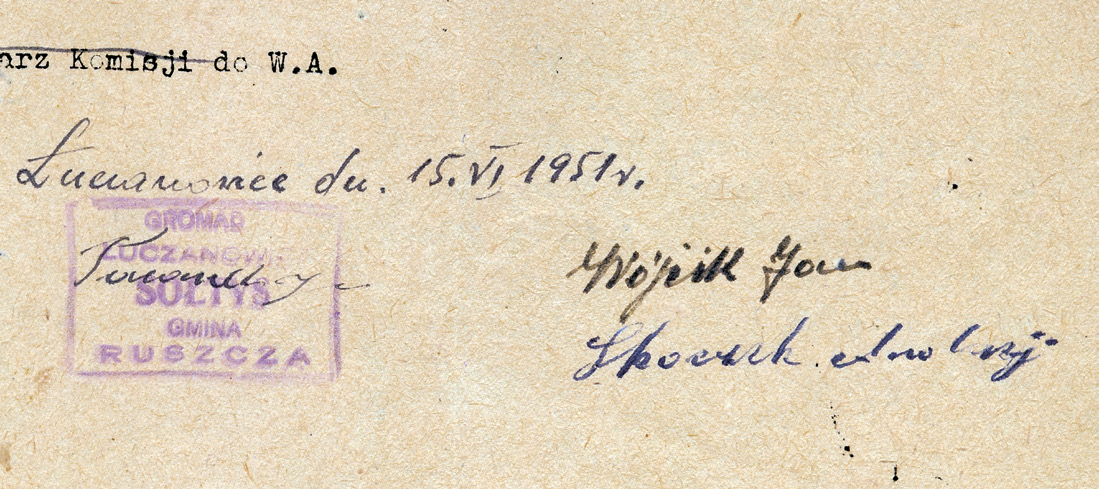 arz Komisji do W.A.
Łucianowice dn. 15.VI 1951r.
GROMAD
ŁUCZANOWI
SOŁTYS
GMINA
RUSZCZA
Wójcik Jan
Skoczek Andrzej